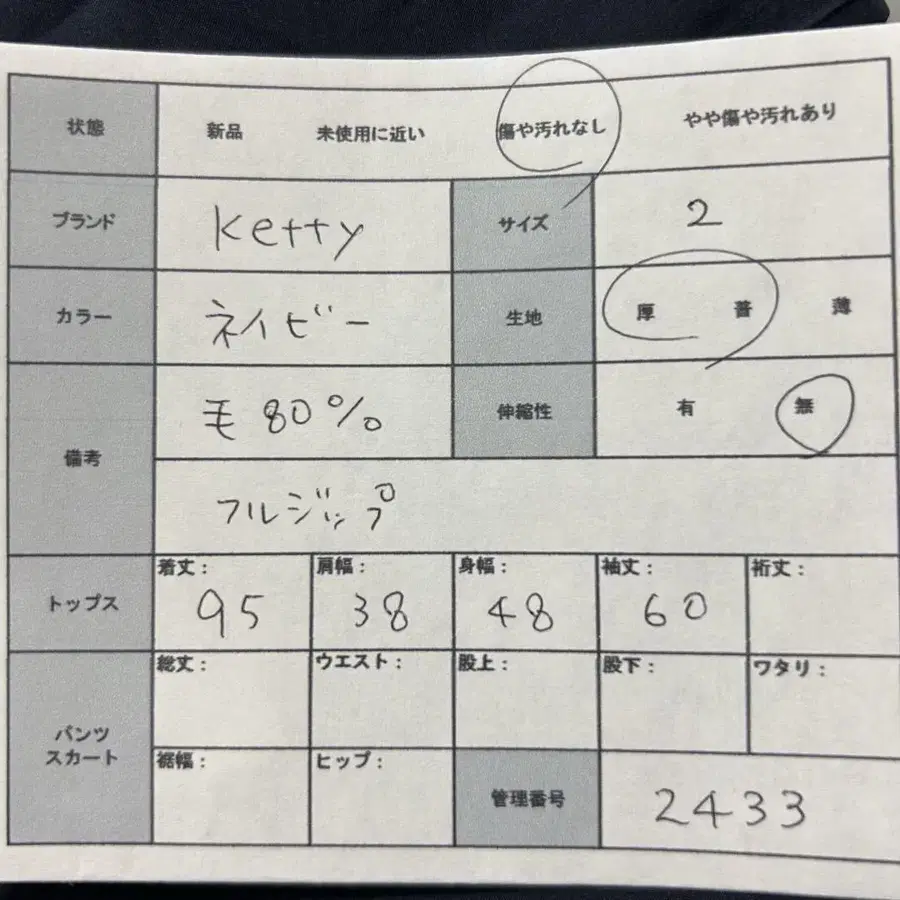 状態 新品 未使用に近い 傷や汚れなし やや傷や汚れあり
ブランド ketty サイズ 2
カラー ネイビー 生地 厚 普 薄
備考 毛80% 伸縮性 有 無
フルジップ
トップス 着丈: 95 肩幅: 38 身幅: 48 袖丈: 60 裄丈:
パンツ スカート 総丈: ウエスト: 股上: 股下: ワタリ:
裾幅: ヒップ: 管理番号 2433